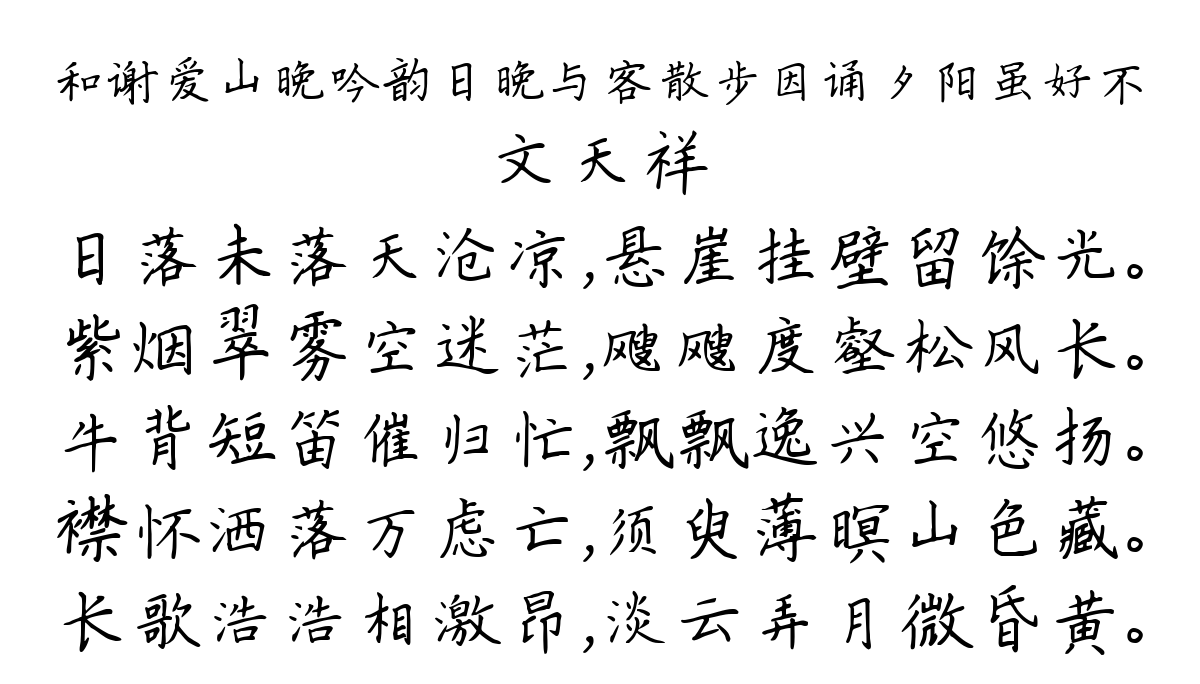 和谢爱山晚吟韵日晚与客散步因诵夕阳虽好不
文天祥
日落未落天沧凉,悬崖挂壁留馀光。
紫烟翠雾空迷茫,飕飕度壑松风长。
牛背短笛催归忙,飘飘逸兴空悠扬。
襟怀洒落万虑亡,须臾薄暝山色藏。
长歌浩浩相激昂,淡云弄月微昏黄。